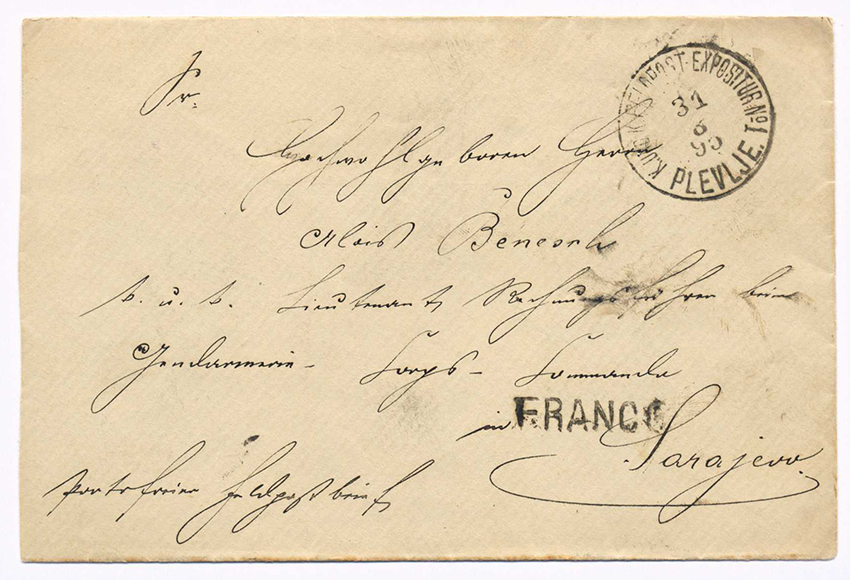 K.UND K. FELDPOST-EXPOSITUR No I
31
8
95
PLEVLJE.
Sr.
Hochwohlgeboren Herrn
Alois Benesch
k. u. k. Lieutenant Rechnungsführer beim
Gendarmerie- Corps- Commando
in
FRANCO
Sarajevo.
Portofreier Feldpostbrief